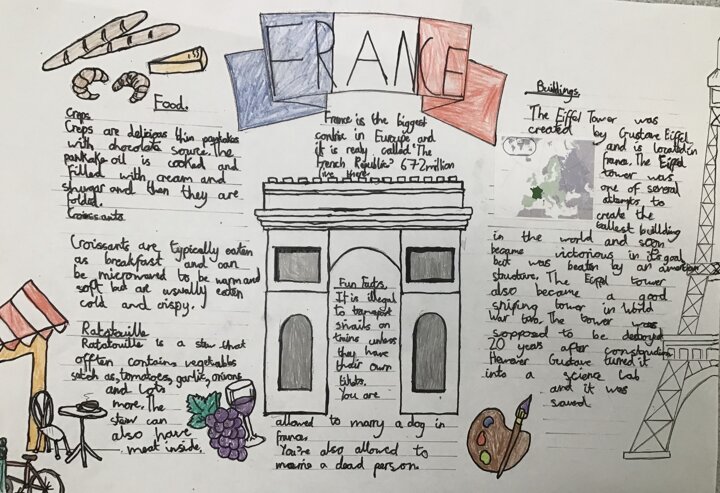 FRANCE
Food.
Creps
Creps are delicious thin pankakes
with chocolate source. The
pankake oil is cooked and
filled with cream and
shugar and then they are
folded.
Croissants
Croissants are typically eaten
as breakfast and can
be microwaved to be warm and
soft but are usually eaten
cold and crispy.
Ratatouille
Ratatouille is a stew that
offten contains vegetables
such as, tomatoes, garlic, onions
and lots
more. The
stew can
also have
meat inside.
France is the biggest
contrie in Europe and
it is realy called "The
French Republic" 67.2 million
live there
Fun Facts.
It is illegal
to transport
snails on
trains unless
they have
their own
tikets.
You are
allowed to marry a dog in
france.
You're also allowed to
marrie a dead person.
Buildings
The Eiffel Tower was
created by Gustave Eiffel
and is located in
france. The Eiffel
tower was
one of several
attempts to
create the
tallest buillding
in the world and soon
became victorious in its goal
but was beaten by an american
structure. The Eiffel tower
also became a good
sniping tower in World
War two. The tower was
sopposed to be destroyed
20 years after construction
However Gustave turned it
into a science lab
and it was
saved